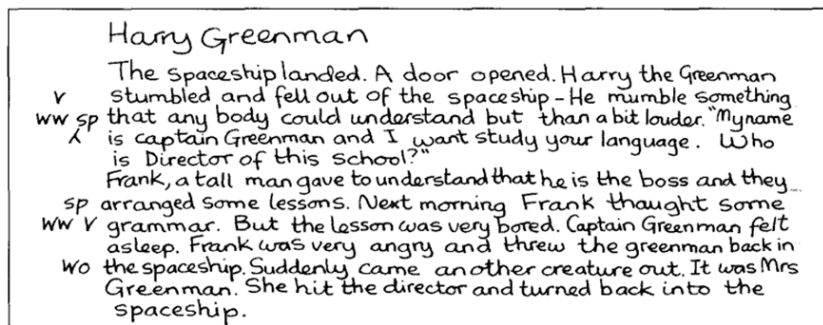 Harry Greenman
The spaceship landed. A door opened. Harry the Greenman
V stumbled and fell out of the spaceship - He mumble something
WW sp that any body could understand but than a bit louder. "My name
⋏ is captain Greenman and I want study your language. Who
is Director of this school?"
Frank, a tall man gave to understand that he is the boss and they
sp arranged some lessons. Next morning Frank thought some
WW V grammar. But the lesson was very bored. Captain Greenman felt
asleep. Frank was very angry and threw the greenman back in
WO the spaceship. Suddenly came another creature out. It was Mrs
Greenman. She hit the director and turned back into the
spaceship.